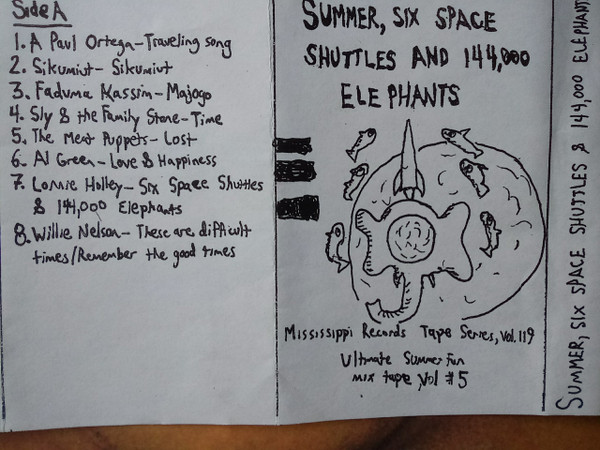 Side A
1. A Paul Ortega - Traveling song
2. Sikumiut - Sikumiut
3. Faduma Kassim - Majogo
4. Sly & the Family Stone - Time
5. The Meat Puppets - Lost
6. Al Green - Love & Happiness
7. Lonnie Holley - Six Space Shuttles
& 144,000 Elephants
8. Willie Nelson - These are difficult
times/Remember the good times
SUMMER, SIX SPACE
SHUTTLES AND 144,000
ELEPHANTS
Mississippi Records Tape Series, Vol. 119
Ultimate Summer Fun
mix tape, Vol #5
SUMMER, SIX SPACE SHUTTLES & 144,000 ELEPHANTS